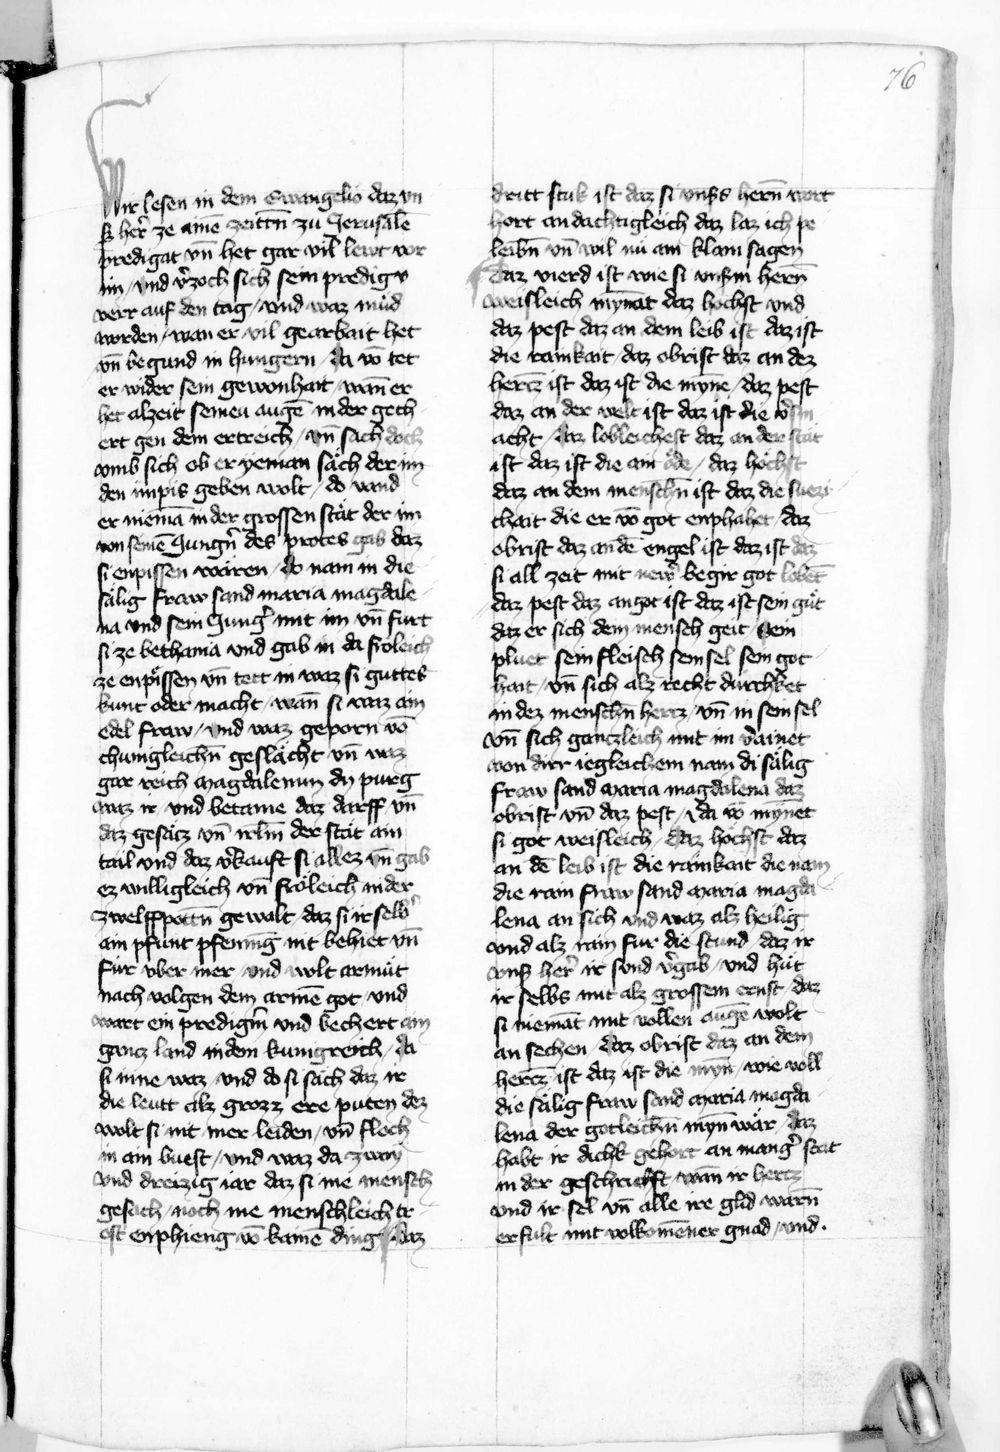 76
Wir lesen in dem Ewangelio daz vn
ß her̄ ze ainē zeittn̄ zu Jerusalē
predigat vn̄ het gar vil lewt vor
im / vnd v̓zoch sich sein predig v
verr auf den tag / vnd waz müd
worden / wan er vil gearbait het
vn̄ begund in hungern / da vō tet
er wider sein gewonhait / wan̄ er
het alzeit seineu augē in der gech
ert gen dem ertreich / vn̄ sach doch
vmb sich ob er yeman säch der im
den impis geben wolt / do vand
er niemā in der grossen stat der im
von seinē Jungn̓ des protes gab daz
si enpissen wären / do nam in die
sälig fraw sand maria magdale
na vnd sein Jung̓ mit im vn̄ furt
si ze bethania vnd gab in da fröleich
ze enpissen vn̄ tett in waz si guttes
kunt oder macht / wan̄ si waz ain
edel fraw / vnd waz geporn vō
chungleichn̄ geslächt vn̄ waz
gar reich magdalenum dy purg
waz ir / vnd betanie daz darff vn̄
daz gesäcz vn̄ irl̄m der stat ain
tail vnd daz v̓kauft si allez vn̄ gab
ez willigleich vn̄ fröleich in der
zwelffpottn̄ gewalt / daz si ir selb̓
ain pfunt pfenning nit behiet vn̄
für vber mer / vnd wolt armüt
nach volgen dem armē got / vnd
wart ein predigr̄in vnd bechert ain
gancz land in dem kunigreich / da
si inne waz / vnd do si sach daz ir
die leutt alz grozz ere puten dez
wolt si nit mer leiden / vn̄ floch
in ain wuest / vnd waz da zway
vnd dreizig iar daz si nie mensch
gesach / noch nie menschleich tr
ost enphieng vō kainē ding / Daz
dritt stuk ist daz si vnßs hern̄ wort
hort andachtigleich daz laz ich pe
leibn̄ vn̄ wil nü ain klain sagen
Daz vierd ist wie si vnßm hern̄
weisleich mynnat daz höchst vnd
daz pest daz an dem leib ist daz ist
die rainkait / daz obrist daz an dez
hercz ist daz ist die mynē / daz pest
daz an der welt ist daz ist die v̓sm
acht / daz lobleichest daz an der stat
ist daz ist die ain öde / daz höchst
daz an dem menschn̄ ist daz die suezi
chait die er vō got enphahet / daz
obrist daz an dē engel ist daz ist daz
si all zeit mit new̓ begir got lobēt
daz pest daz an got ist daz ist sein güt
daz er sich dem mensch geit / sein
pluet sein fleisch sein sel sein got
hait / vn̄ sich alz recht durchk̓et
in dez menschn̄ hercz / vn̄ in sein sel
vn̄ sich ganczleich mit im v̓ainet
von dirr iegleichem nam di sälig
fraw sand maria magdalena daz
obrist vn̄ daz pest / da vō mynnet
si got weisleich / Daz höchst daz
an dē leib ist die rainkait die nam
die rain fraw sand maria magda
lena an sich vnd waz alz heilig
vnd alz rain fur die stund / daz ir
vnß her̄ ir sünd v̓gab / vnd hüt
ir selbs mit alz grossem ernst / daz
si niemāt mit vollen augē wolt
an sechen / Daz obrist daz an dem
hercz ist daz ist die myn̄ / wie voll
die sälig fraw sand maria magda
lena der gotleichn̄ myn̄ wär / daz
habt ir dichk gehort an mang̓ stat
in der geschrifft / wan̄ ir hercz
vnd ir sel vn̄ alle ire glid warn̄
erfult mit volkomēner gnad / vnd.